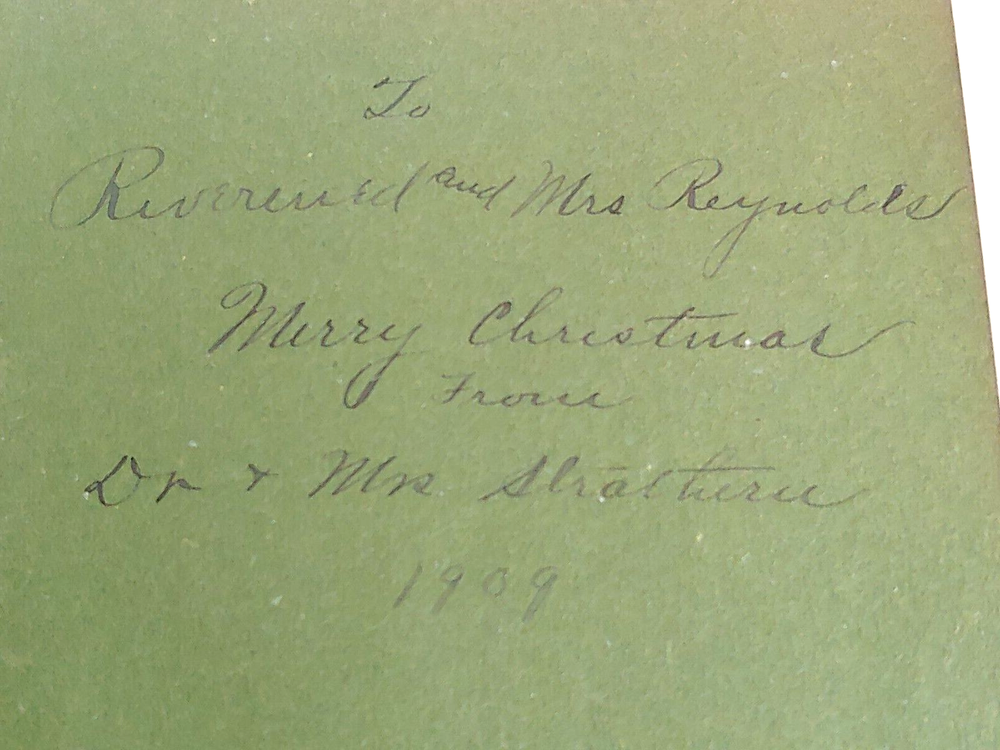 To
Reverened and Mrs Reynolds
Merry Christmas
From
Dr + Mrs Strathern
1909